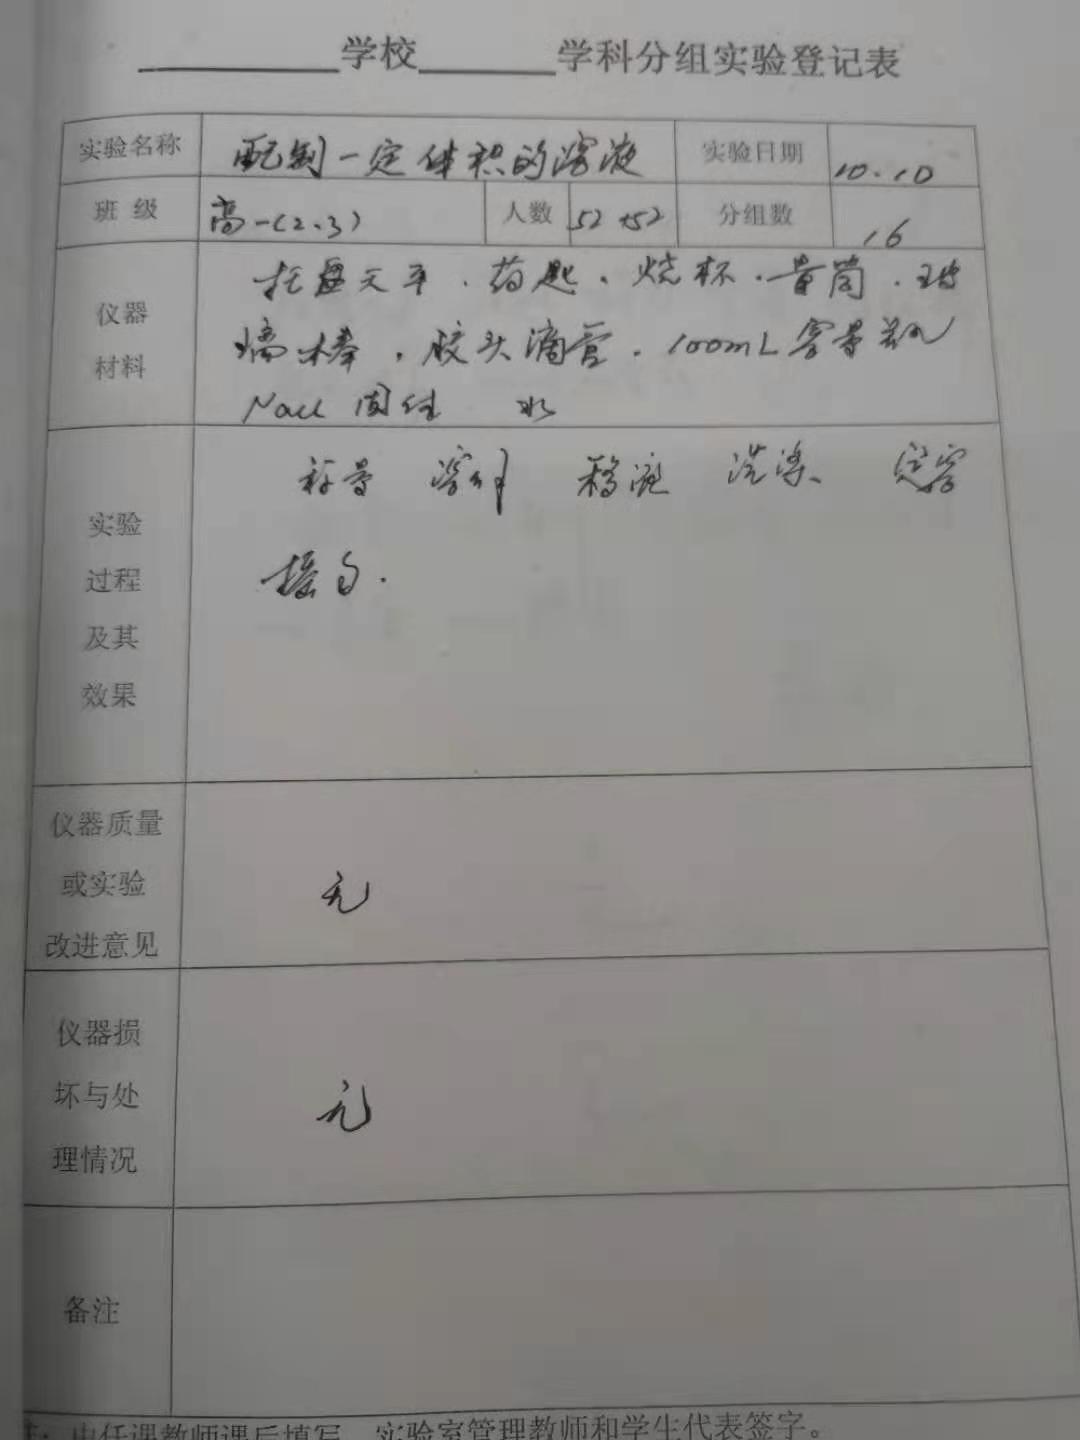 ________学校______学科分组实验登记表
实验名称 配制一定体积的溶液 实验日期 10.10
班 级 高一(2、3) 人数 52+52 分组数 16
仪器
材料
托盘天平、药匙、烧杯、量筒、玻
璃棒、胶头滴管、100mL容量瓶
NaCl 固体 水
实验
过程
及其
效果
称量 溶解 移液 洗涤、定容
摇匀.
仪器质量
或实验
改进意见
无
仪器损
坏与处
理情况
无
备注
由任课教师课后填写，实验室管理教师和学生代表签字。